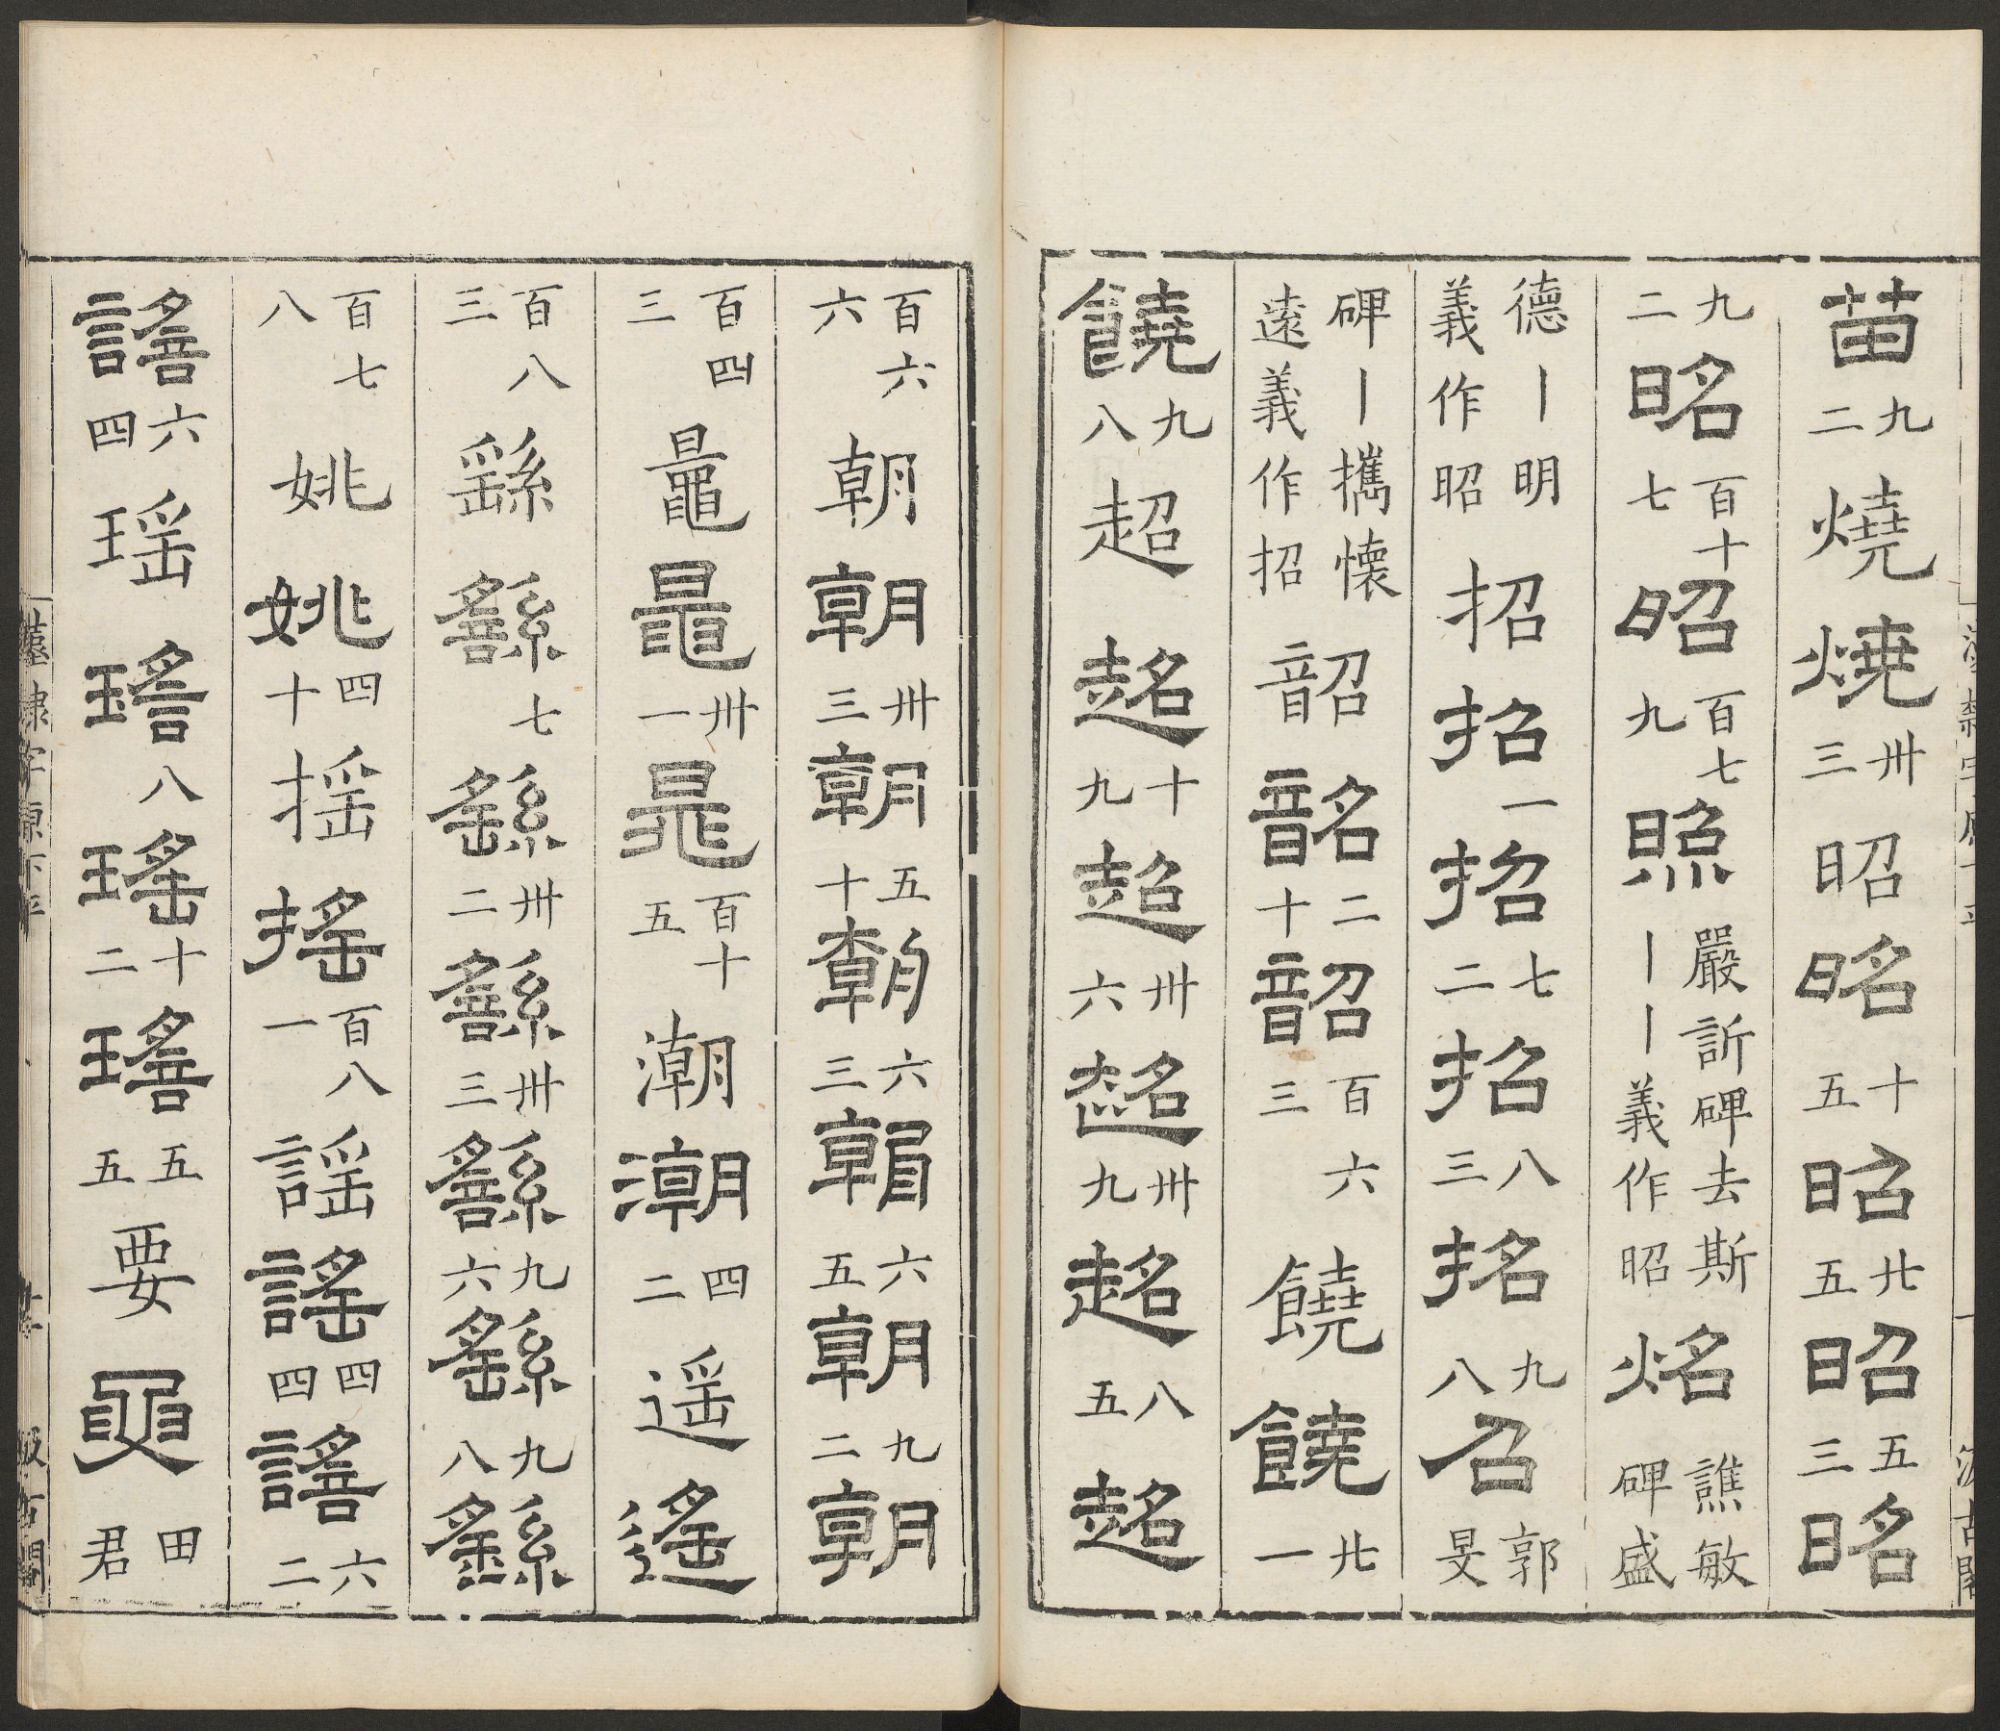 苗九二燒燒卅三昭昭十五昭廿五昭五三昭
九二昭百十七昭百七九照嚴訢碑去斯｜｜義作昭炤譙敏碑盛
德｜明義作昭招招一招七二招八三招九八召郭旻
碑｜攜懷遠義作招韶韶二十韶百六三饒饒廿一
饒九八超超十九超卅六超卅九超八五超
百六六朝朝卅三朝五十朝六三朝六五朝九二朝
百四三鼂鼂卅一鼂百十五潮潮四二遥遙
百八三繇繇七繇卅二繇卅三繇九六繇九八繇
百七八姚姚四十揺搖百八一謡謠四四謠六二
謠六四瑶瑤八瑤十二瑤五五要要田君
漢隸字源下平 汲古閣